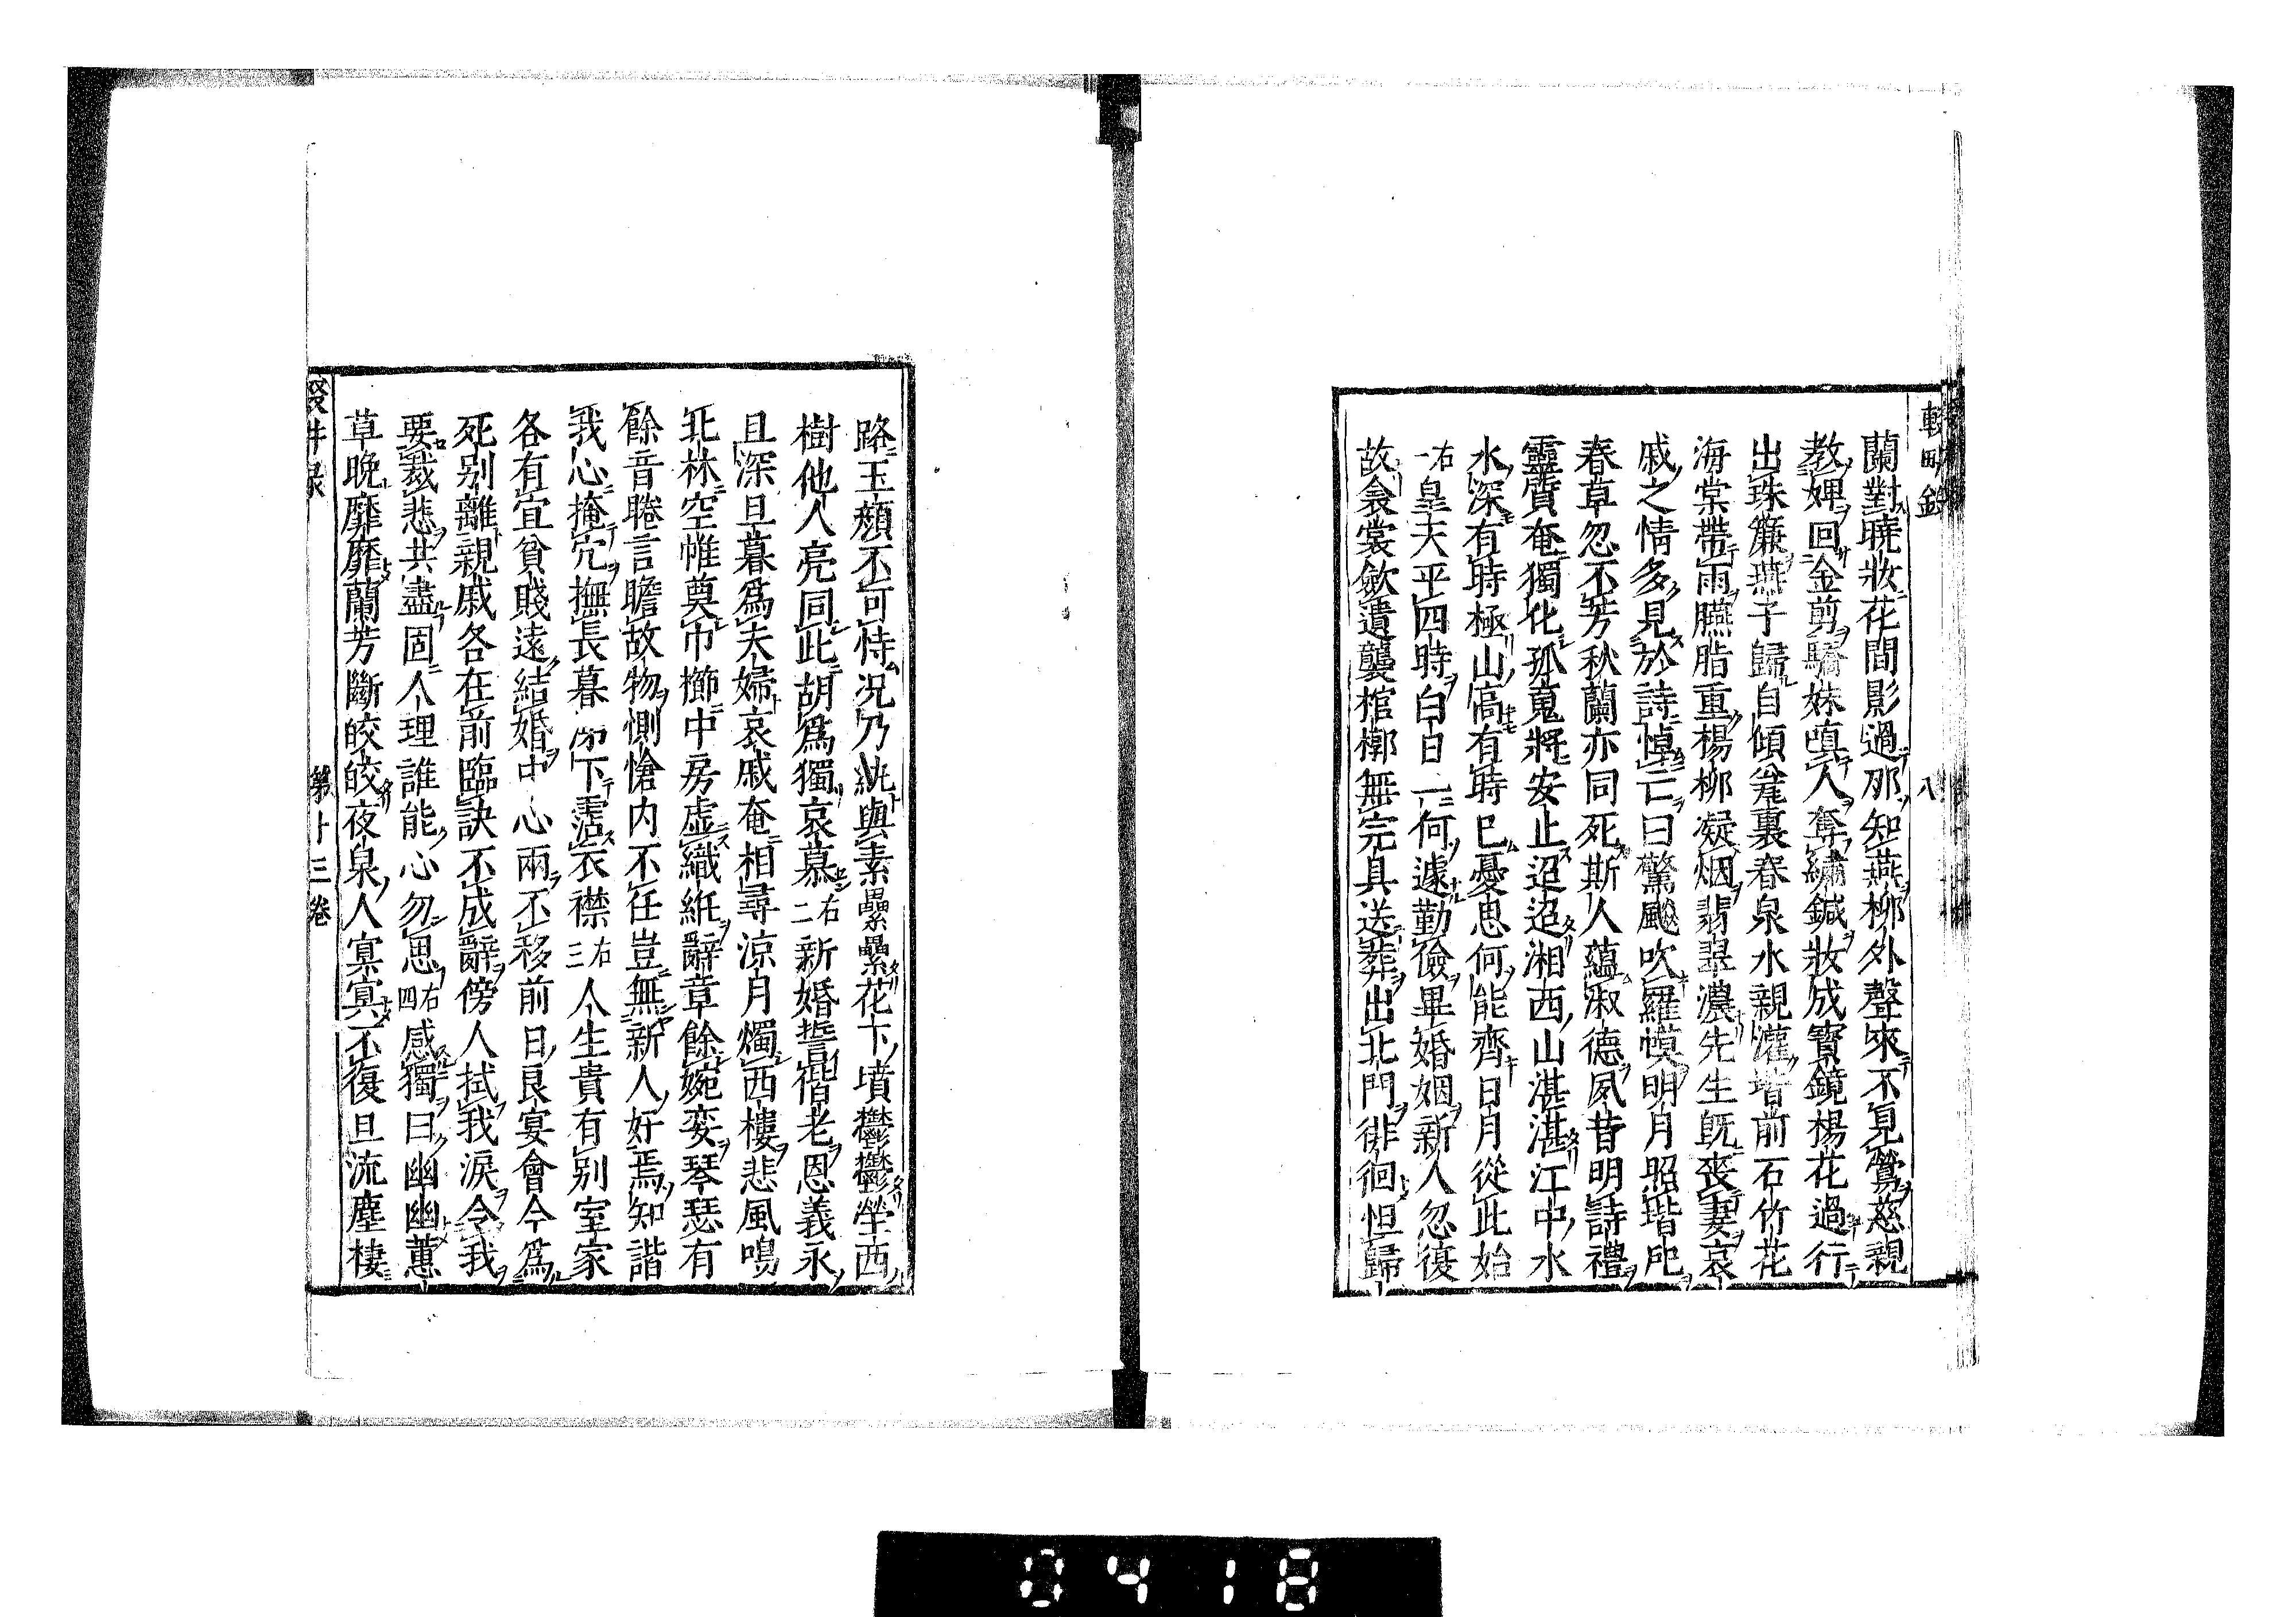 輟畊錄
八
蘭對曉妝花間影過那知燕柳外聲來不見鶯慈親
教婢回金剪驕妹嗔人奪繡鍼妝成寶鏡楊花過行
出珠簾燕子歸自傾瓮裏春泉水親灌堦前石竹花
海棠帶雨臙脂重楊柳凝烟翡翠濃先生旣喪妻哀
戚之情多見於詩悼亡曰驚飈吹羅幙明月照堦戺
春草忽不芳秋蘭亦同死斯人蘊淑德夙昔明詩禮
靈質奄獨化孤䰟將安止迢迢湘西山湛湛江中水
水深有時極山高有時已憂思何能齊日月從此始
右一皇天平四時白日一何遽勤儉畢婚姻新人忽復
故衾裳斂遺襲棺槨無完具送葬出北門徘徊怛歸
路玉顏不可恃況乃紈與素纍纍花下墳鬱鬱塋西
樹他人亮同此胡爲獨哀慕右二新婚誓偕老恩義永
且深旦暮爲夫婦哀戚奄相尋涼月燭西樓悲風鳴
北林空帷奠巾櫛中房虛織紝辭章餘婉孌琴瑟有
餘音睠言瞻故物惻愴内不任豈無新人好焉知諧
我心掩穴撫長暮涕下霑衣襟右三人生貴有别室家
各有宜貧賤遠結婚中心兩不移前日良宴會今爲
死别離親戚各在前臨訣不成辭傍人拭我淚令我
要裁悲共盡固人理誰能心忽思右四感獨曰幽幽蕙
草晚靡靡蘭芳斷皎皎夜泉人寞寞不復旦流塵棲
第十三卷
0418